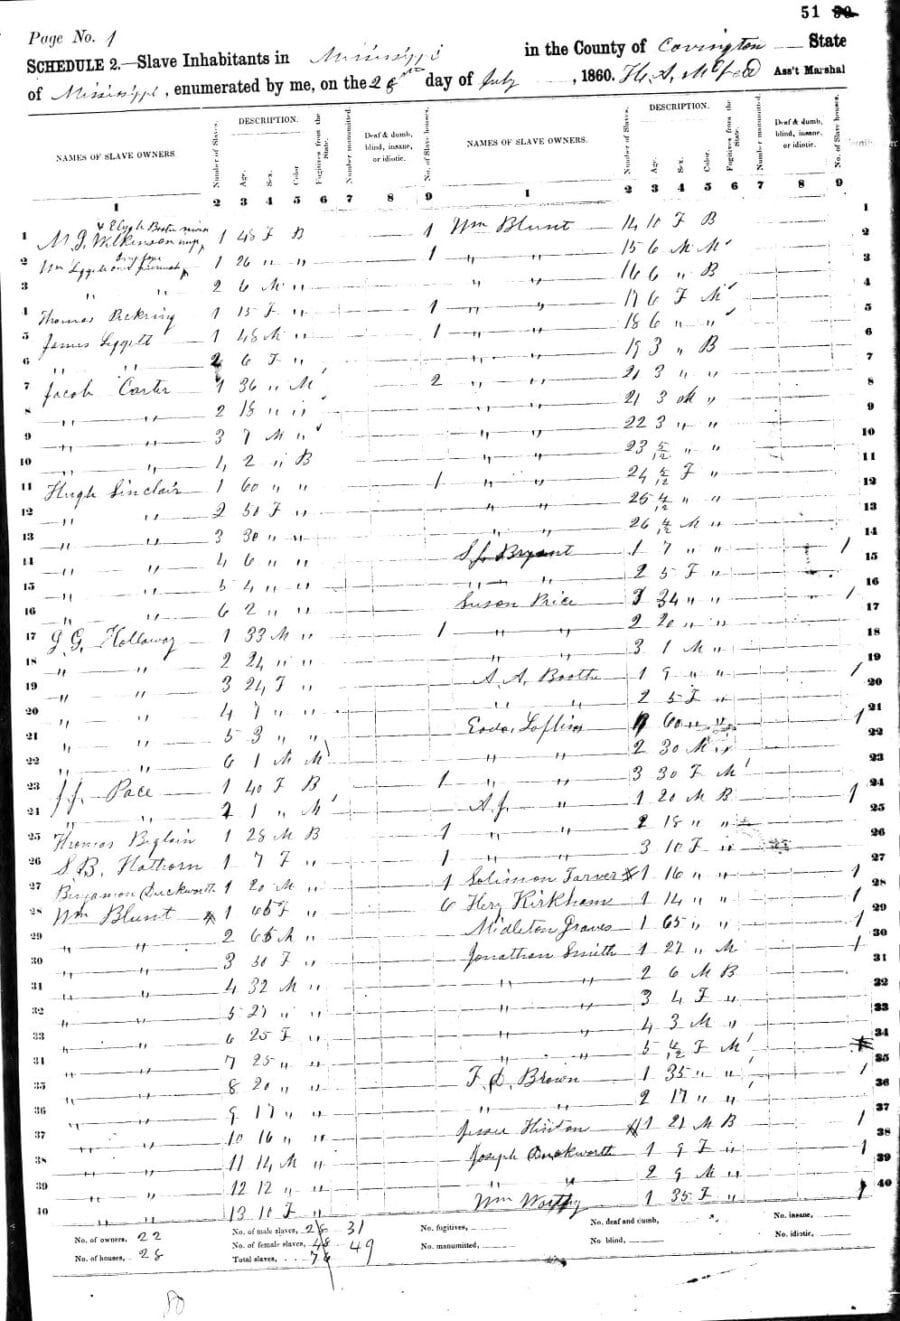 51 80
Page No. 1
SCHEDULE 2.—Slave Inhabitants in Mississippi in the County of Covington State
of Mississippi, enumerated by me, on the 28th day of July, 1860. Ass't Marshal
NAMES OF SLAVE OWNERS. Number of Slaves. DESCRIPTION. Age. Sex. Color Fugitives from the State. Number manumitted. Deaf & dumb, blind, insane, or idiotic. No. of Slave houses. NAMES OF SLAVE OWNERS. Number of Slaves. DESCRIPTION. Age. Sex. Color. Fugitives from the State. Number manumitted. Deaf & dumb, blind, insane, or idiotic. No. of Slave houses.
1 2 3 4 5 6 7 8 9 1 2 3 4 5 6 7 8 9
1 M. J. Wilkinson 1 48 F B 1 Wm Blunt 14 10 F B 1
2 Wm Leggett 1 26 " " 1 " " 15 6 M M 2
3 " " 2 6 M " " " 16 6 " B 3
4 Thomas Pickring 1 15 F " 1 " " 17 6 F M 4
5 James Leggett 1 48 M " 1 " " 18 6 " " 5
6 " " 2 6 F " " " 19 3 " B 6
7 Jacob Carter 1 36 " M 2 " " 3 " " 7
8 " " 2 18 " " " " 21 3 M " 8
9 " " 3 7 M " " " 22 3 " " 9
10 " " 4 2 " B " " 23 5/12 " " 10
11 Hugh Sinclair 1 60 " " 1 " " 24 F " 11
12 " " 2 50 F " 25 4/12 " " 12
13 " " 3 30 " " " " 26 4/12 M " 13
14 " " 4 6 " " Bryant 1 7 " " 1 14
15 " " 5 4 " " " " 2 5 F " 15
16 " " 6 2 " " Susan Price 34 " " 1 16
17 J. G. Holloway 1 33 M " 1 " " 2 20 " " 17
18 " " 2 24 " " " " 3 1 M " 18
19 " " 3 24 F " A. A. Booth 1 9 " " 1 19
20 " " 4 7 " " " " 2 5 F " 20
21 " " 5 3 " " Loflin 60 " " 1 21
22 " " 6 1 M M " " 2 30 M " 22
23 J. J. Pace 1 40 F B 1 " " 3 30 F M 23
24 " " 2 1 " M A. J. " 1 20 M B 1 24
25 Thomas 1 28 M B 1 " " 2 18 " " 25
26 S. B. Hathorn 1 7 F " 1 3 10 F " 26
27 Benjamon Duckworth 1 20 M " 1 Solimon Tarver 1 16 " " 1 27
28 Wm Blunt 1 F " 6 Kirkham 1 14 " " 1 28
29 " " 2 " Midleton Graves 1 65 " " 1 29
30 " " 3 F " Jonathan Smith 1 27 " M 1 30
31 " " 4 32 M " " " 2 6 M B 31
32 " " 5 27 " " " " 3 4 F " 32
33 " " 6 25 F " " " 4 3 M " 33
34 " " 7 25 " " " " 5 4/12 F M 34
35 " " 8 20 " " Brown 1 35 " " 1 35
36 " " 9 17 " " " " 2 17 " " 36
37 " " 10 16 " " Jessee Hinton 1 21 M B 1 37
38 " " 11 14 M " Joseph Duckworth 1 9 F " 1 38
39 " " 12 12 " " " " 2 9 M " 39
40 " " 13 10 F " Wm Worthy 1 35 F " 1 40
No. of owners, 22 No. of male slaves, 31 No. fugitives, No. deaf and dumb, No. insane,
No. of houses, 28 No. of female slaves, 48 49 No. manumitted, No blind, No. idiotic,
Total slaves, 76
80